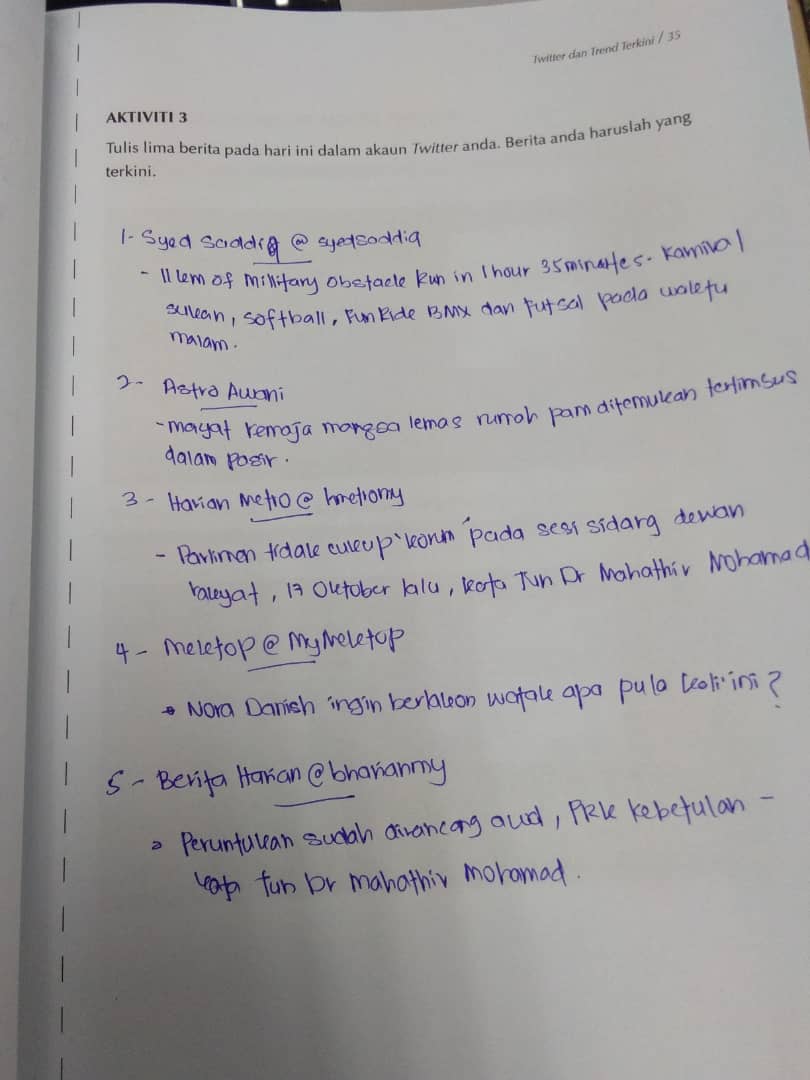 Twitter dan Trend Terkini / 35
AKTIVITI 3
Tulis lima berita pada hari ini dalam akaun Twitter anda. Berita anda haruslah yang
terkini.
1- Syed Saddiq @ syedsaddiq
- 11 km of military obstacle Run in 1 hour 35 minutes. Karnival
sukan, softball, Fun Ride BMX dan Futsal pada waktu
malam.
2- Astro Awani
- mayat remaja mangsa lemas rumah pam ditemukan tertimbus
dalam pasir.
3 - Harian Metro @ hmetromy
- Parlimen tidak cukup 'korum' pada sesi sidang dewan
rakyat, 17 Oktober lalu, kata Tun Dr Mahathir Mohamad
4 - Meletop @ MyMeletop
Nora Danish ingin berlakon watak apa pula kali ini?
5 - Berita Harian @ bharianmy
Peruntukan sudah dirancang awal, PRK kebetulan -
kata tun Dr mahathir mohamad.